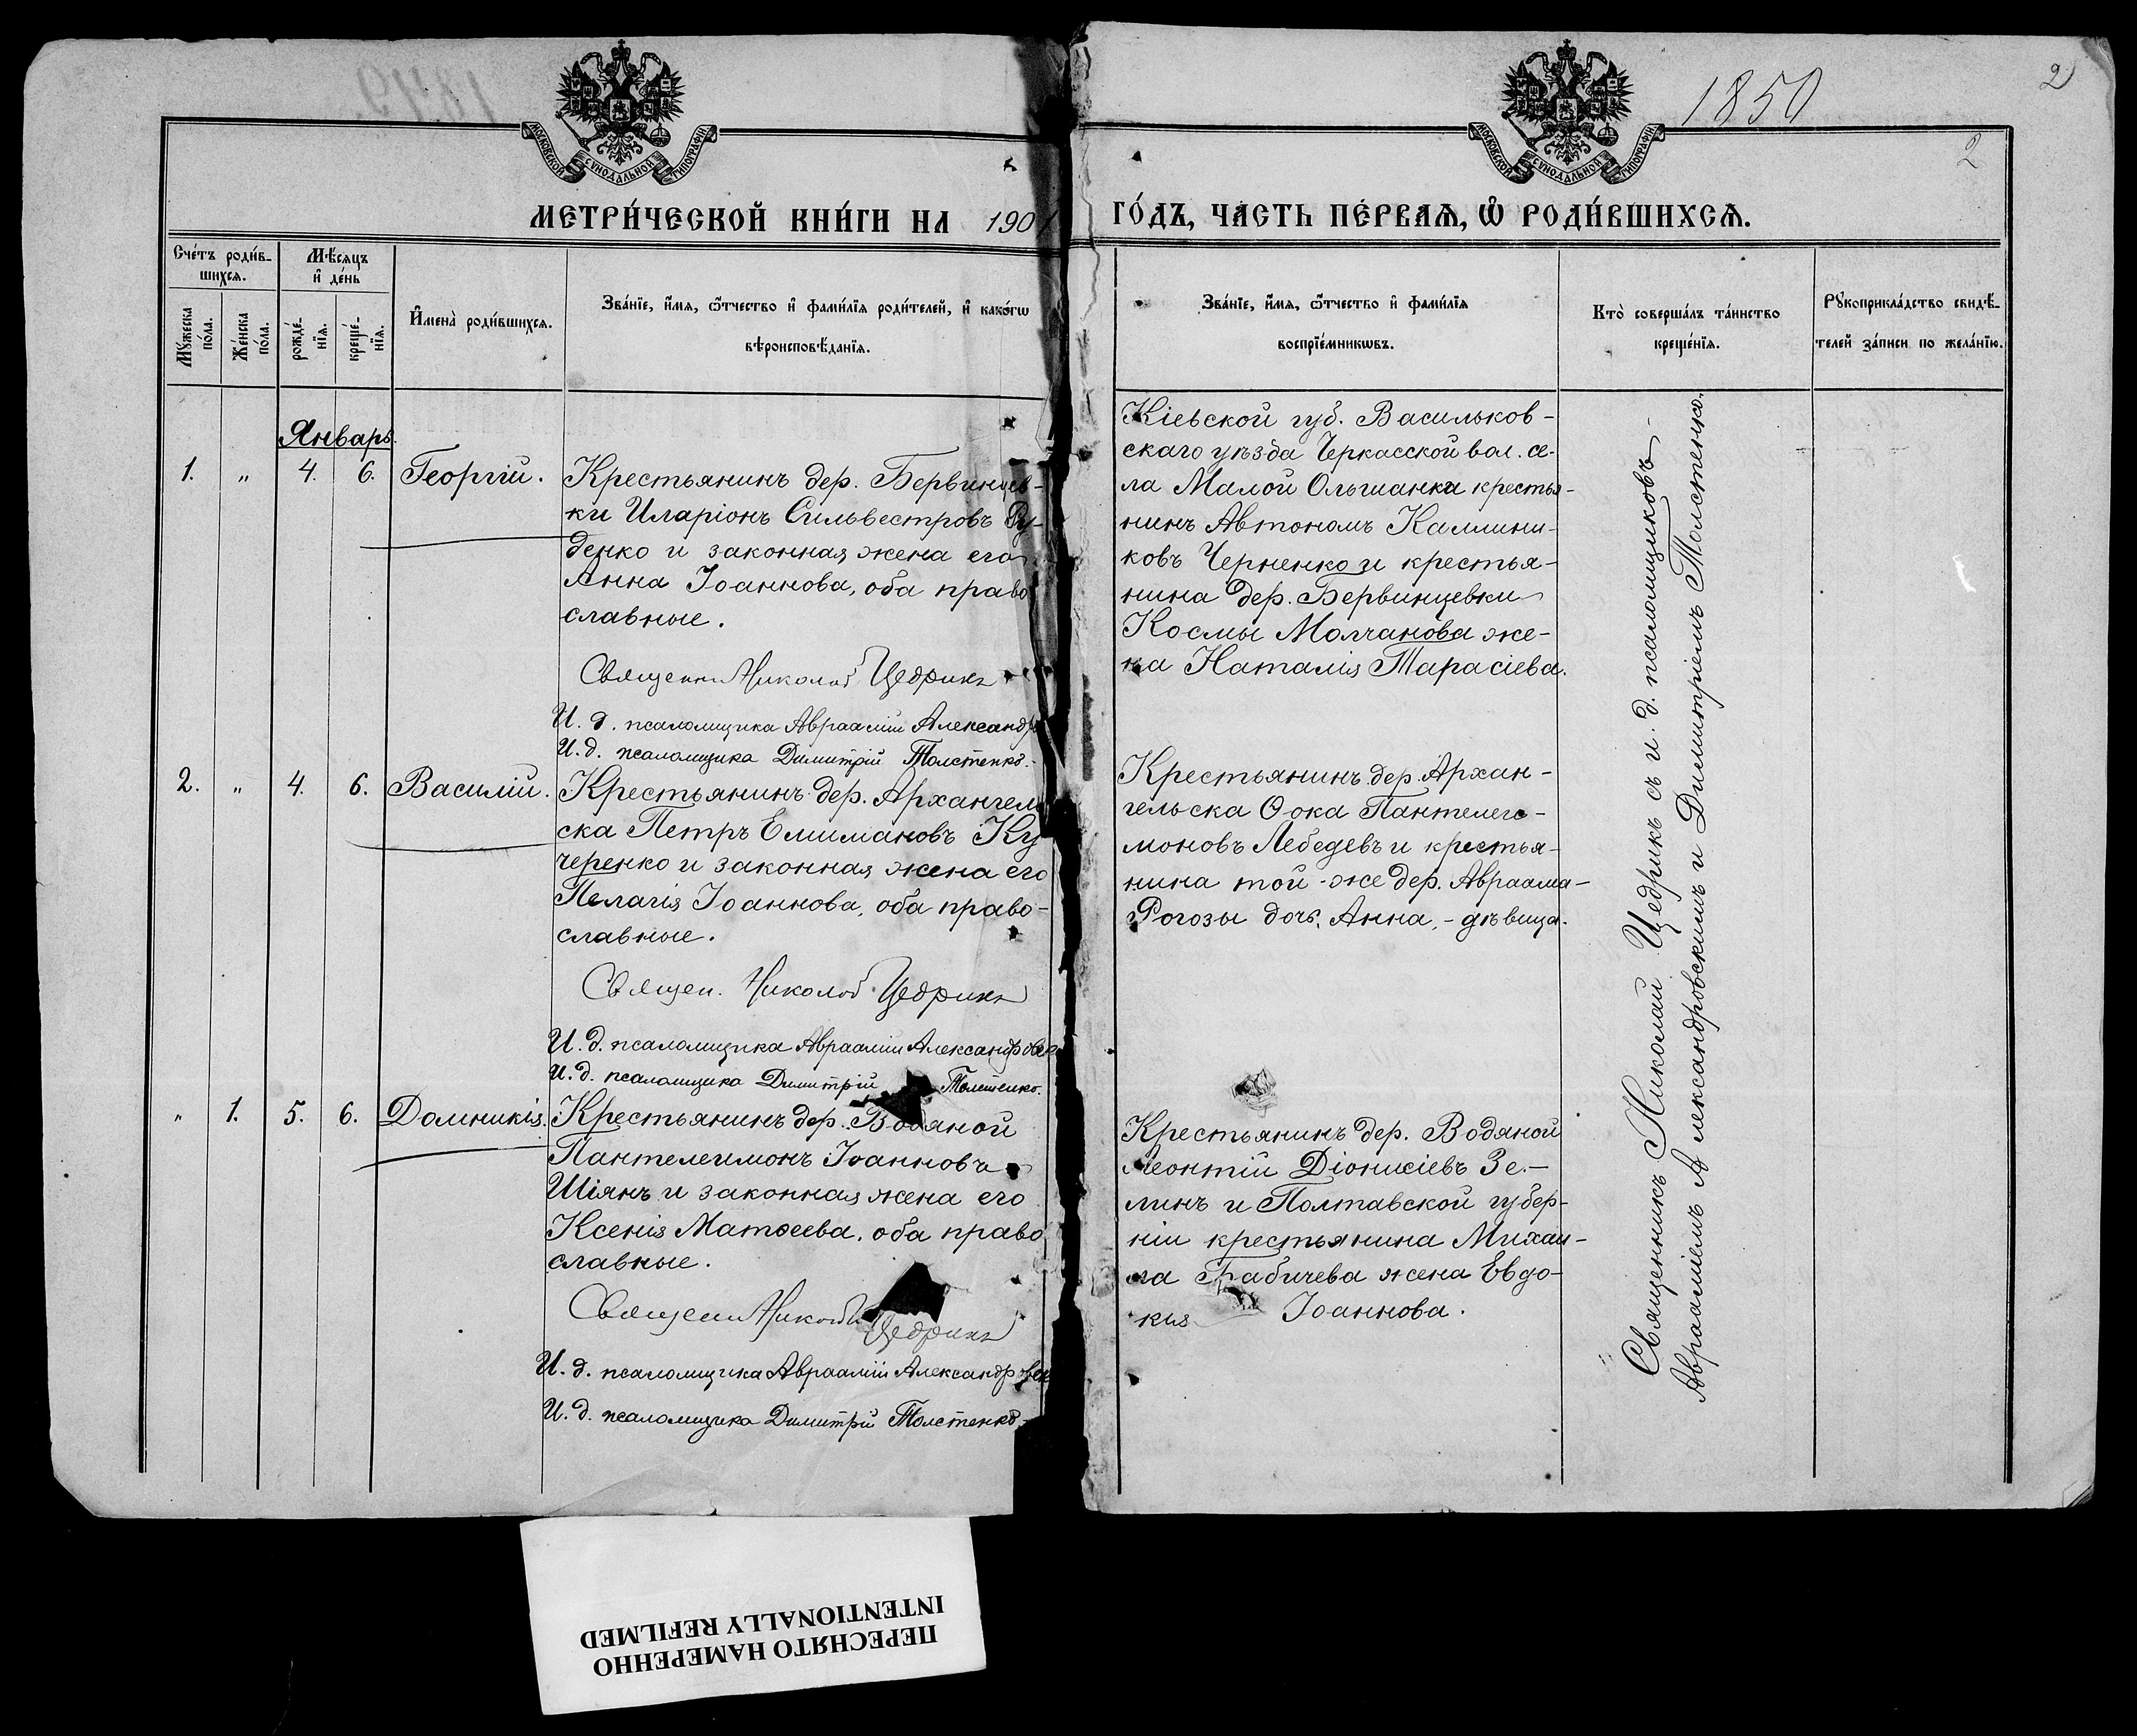 1850
2
2
МОСКОВСКОЙ СѴНОДАЛЬНОЙ ТИПОГРАФІИ
МОСКОВСКОЙ СѴНОДАЛЬНОЙ ТИПОГРАФІИ
МЕТРИ́ЧЕСКОЙ КНИ́ГИ НА 1901 ГО́ДЪ, ЧАСТЬ ПЕ́РВАѦ, Ѿ РОДИ́ВШИХСѦ.
Сче́тъ роди́в-
шихсѧ.
Мѣ́сѧцъ
и҆ де́нь
Мꙋ́жеска
по́ла.
Же́нска
по́ла.
рожде́-
нїѧ.
креще́-
нїѧ.
И҆мена̀ роди́вшихсѧ.
Зва́нїе, и҆́мѧ, ѻ҆́тчество и҆ фами́лїѧ роди́телей, и҆ како́гѡ
вѣроисповѣ́данїѧ.
Зва́нїе, и҆́мѧ, ѻ҆́тчество и҆ фами́лїѧ
воспрїе́мникѡвъ.
Кто̀ соверша́лъ та́инство
креще́нїѧ.
Рꙋкоприкла́дство свидѣ́-
телей за́писи по жела́нїю.
Январь
1. " 4. 6. Георгій.
Крестьянинъ дер. Бервинцев-
ки Иларіонъ Сильвестровъ Ру-
денко и законная жена его
Анна Іоаннова, оба право
славные.
Священ. Николай Цедрикъ
И. д. псаломщика Авраамій Александров
И. д. псаломщика Димитрій Толстенко.
Кіевской губ. Васильков-
скаго уѣзда Черкасской вол. се-
ла Малой Ольшанки крестья-
нинъ Автономъ Каллини-
ковъ Черненко и крестья-
нина дер. Бервинцевки
Космы Молчанова же-
на Наталія Тарасіева.
2. " 4. 6. Василій.
Крестьянинъ дер. Архангель
ска Петръ Елимановъ Ку
черенко и законная жена его
Пелагія Іоаннова, оба право-
славные.
Священ. Николай Цедрикъ
И. д. псаломщика Авраамій Александровск
И. д. псаломщика Димитрій Толстенко.
Крестьянинъ дер. Архан-
гельска Ѳока Пантелеге-
моновъ Лебедевъ и крестья-
нина той-же дер. Авраама-
Рогозы дочь, Анна,- дѣвица.
" 1. 5. 6. Домникія.
Крестьянинъ дер. Водяной
Пантелеимонъ Іоанновъ
Шіянъ и законная жена его
Ксенія Матѳеева, оба право
славные.
Священ Николай Цедрикъ
И. д. псаломщика Авраамій Александровск
И. д. псаломщика Димитрій Толстенко.
Крестьянинъ дер. Водяной
Леонтій Діонисіевъ Зе-
линъ и Полтавской губер-
ніи крестьянина Михаи-
ла Грабичева жена Евдо-
кія Іоаннова.
Священникъ Николай Цедрикъ съ и. д. псаломщиковъ-
Авраамiемъ Александровскимъ и Димитріемъ Толстенко.
ПЕРЕСНЯТО НАМЕРЕННО
INTENTIONALLY REFILMED